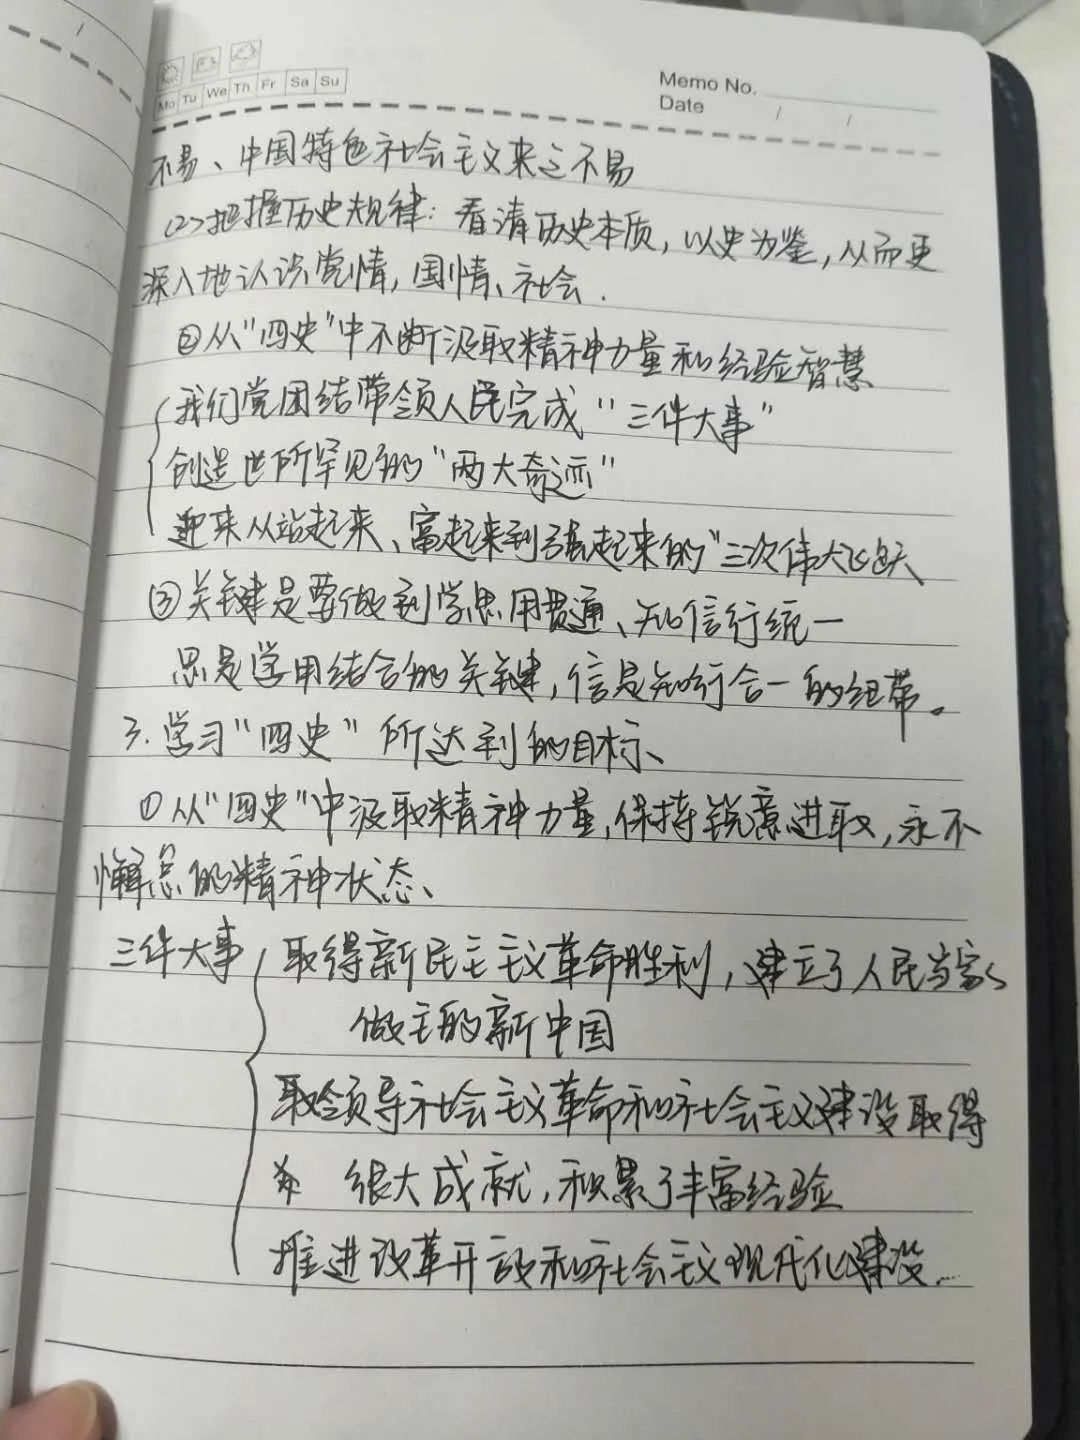 Mo Tu We Th Fr Sa Su
Memo No.
Date / /
不易、中国特色社会主义来之不易
(2)把握历史规律：看清历史本质，以史为鉴，从而更
深入地认识党情，国情、社会.
②从“四史”中不断汲取精神力量和经验智慧
我们党团结带领人民完成“三件大事”
创造世所罕见的“两大奇迹”
迎来从站起来、富起来到强起来的“三次伟大飞跃
③关键是要做到学思用贯通、知信行统一
思是学用结合的关键，信是知行合一的纽带。
3.学习“四史”所达到的目标、
①从“四史”中汲取精神力量，保持锐意进取，永不
懈怠的精神状态、
三件大事 取得新民主主义革命胜利，建立了人民当家
做主的新中国
领导社会主义革命和社会主义建设取得
很大成就，积累了丰富经验
推进改革开放和社会主义现代化建设...